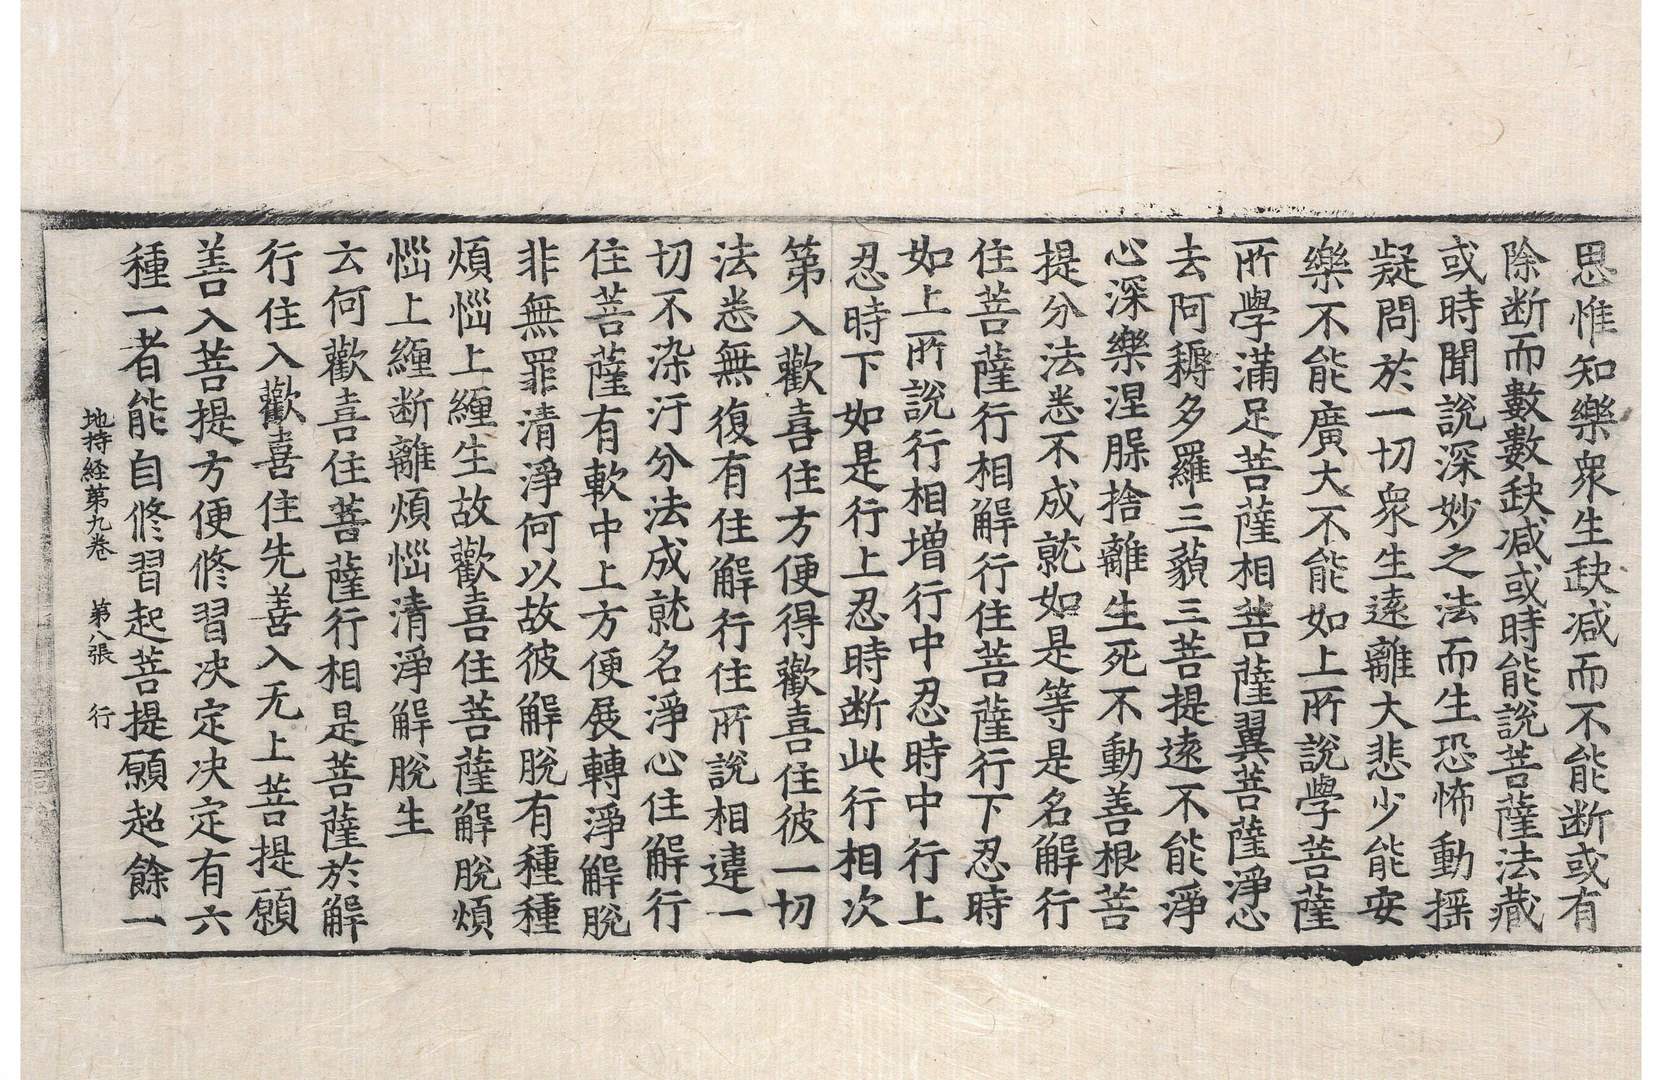 思惟知樂衆生缺减而不能断或有
除断而數數缺减或時能說菩薩法藏
或時聞說深妙之法而生恐怖動揺
疑問於一切衆生遠離大悲少能安
樂不能廣大不能如上所說學菩薩
所學滿足菩薩相菩薩翼菩薩淨心
去阿耨多羅三藐三菩提遠不能淨
心深樂涅臊捨離生死不動善根菩
提分法悉不成就如是等是名解行
住菩薩行相解行住菩薩行下忍時
如上所說行相增行中忍時中行上
忍時下如是行上忍時断此行相次
第入歡喜住方便得歡喜住彼一切
法悉無復有住解行住所說相違一
切不染汙分法成就名淨心住解行
住菩薩有軟中上方便展轉淨解脫
非無罪清淨何以故彼解脫有種種
煩惱上纏生故歡喜住菩薩解脫煩
惱上纏断離煩惱清淨解脫生
云何歡喜住菩薩行相是菩薩於解
行住入歡喜住先善入无上菩提願
善入菩提方便修習決定決定有六
種一者能自修習起菩提願超餘一
地持経第九卷 第八張 行